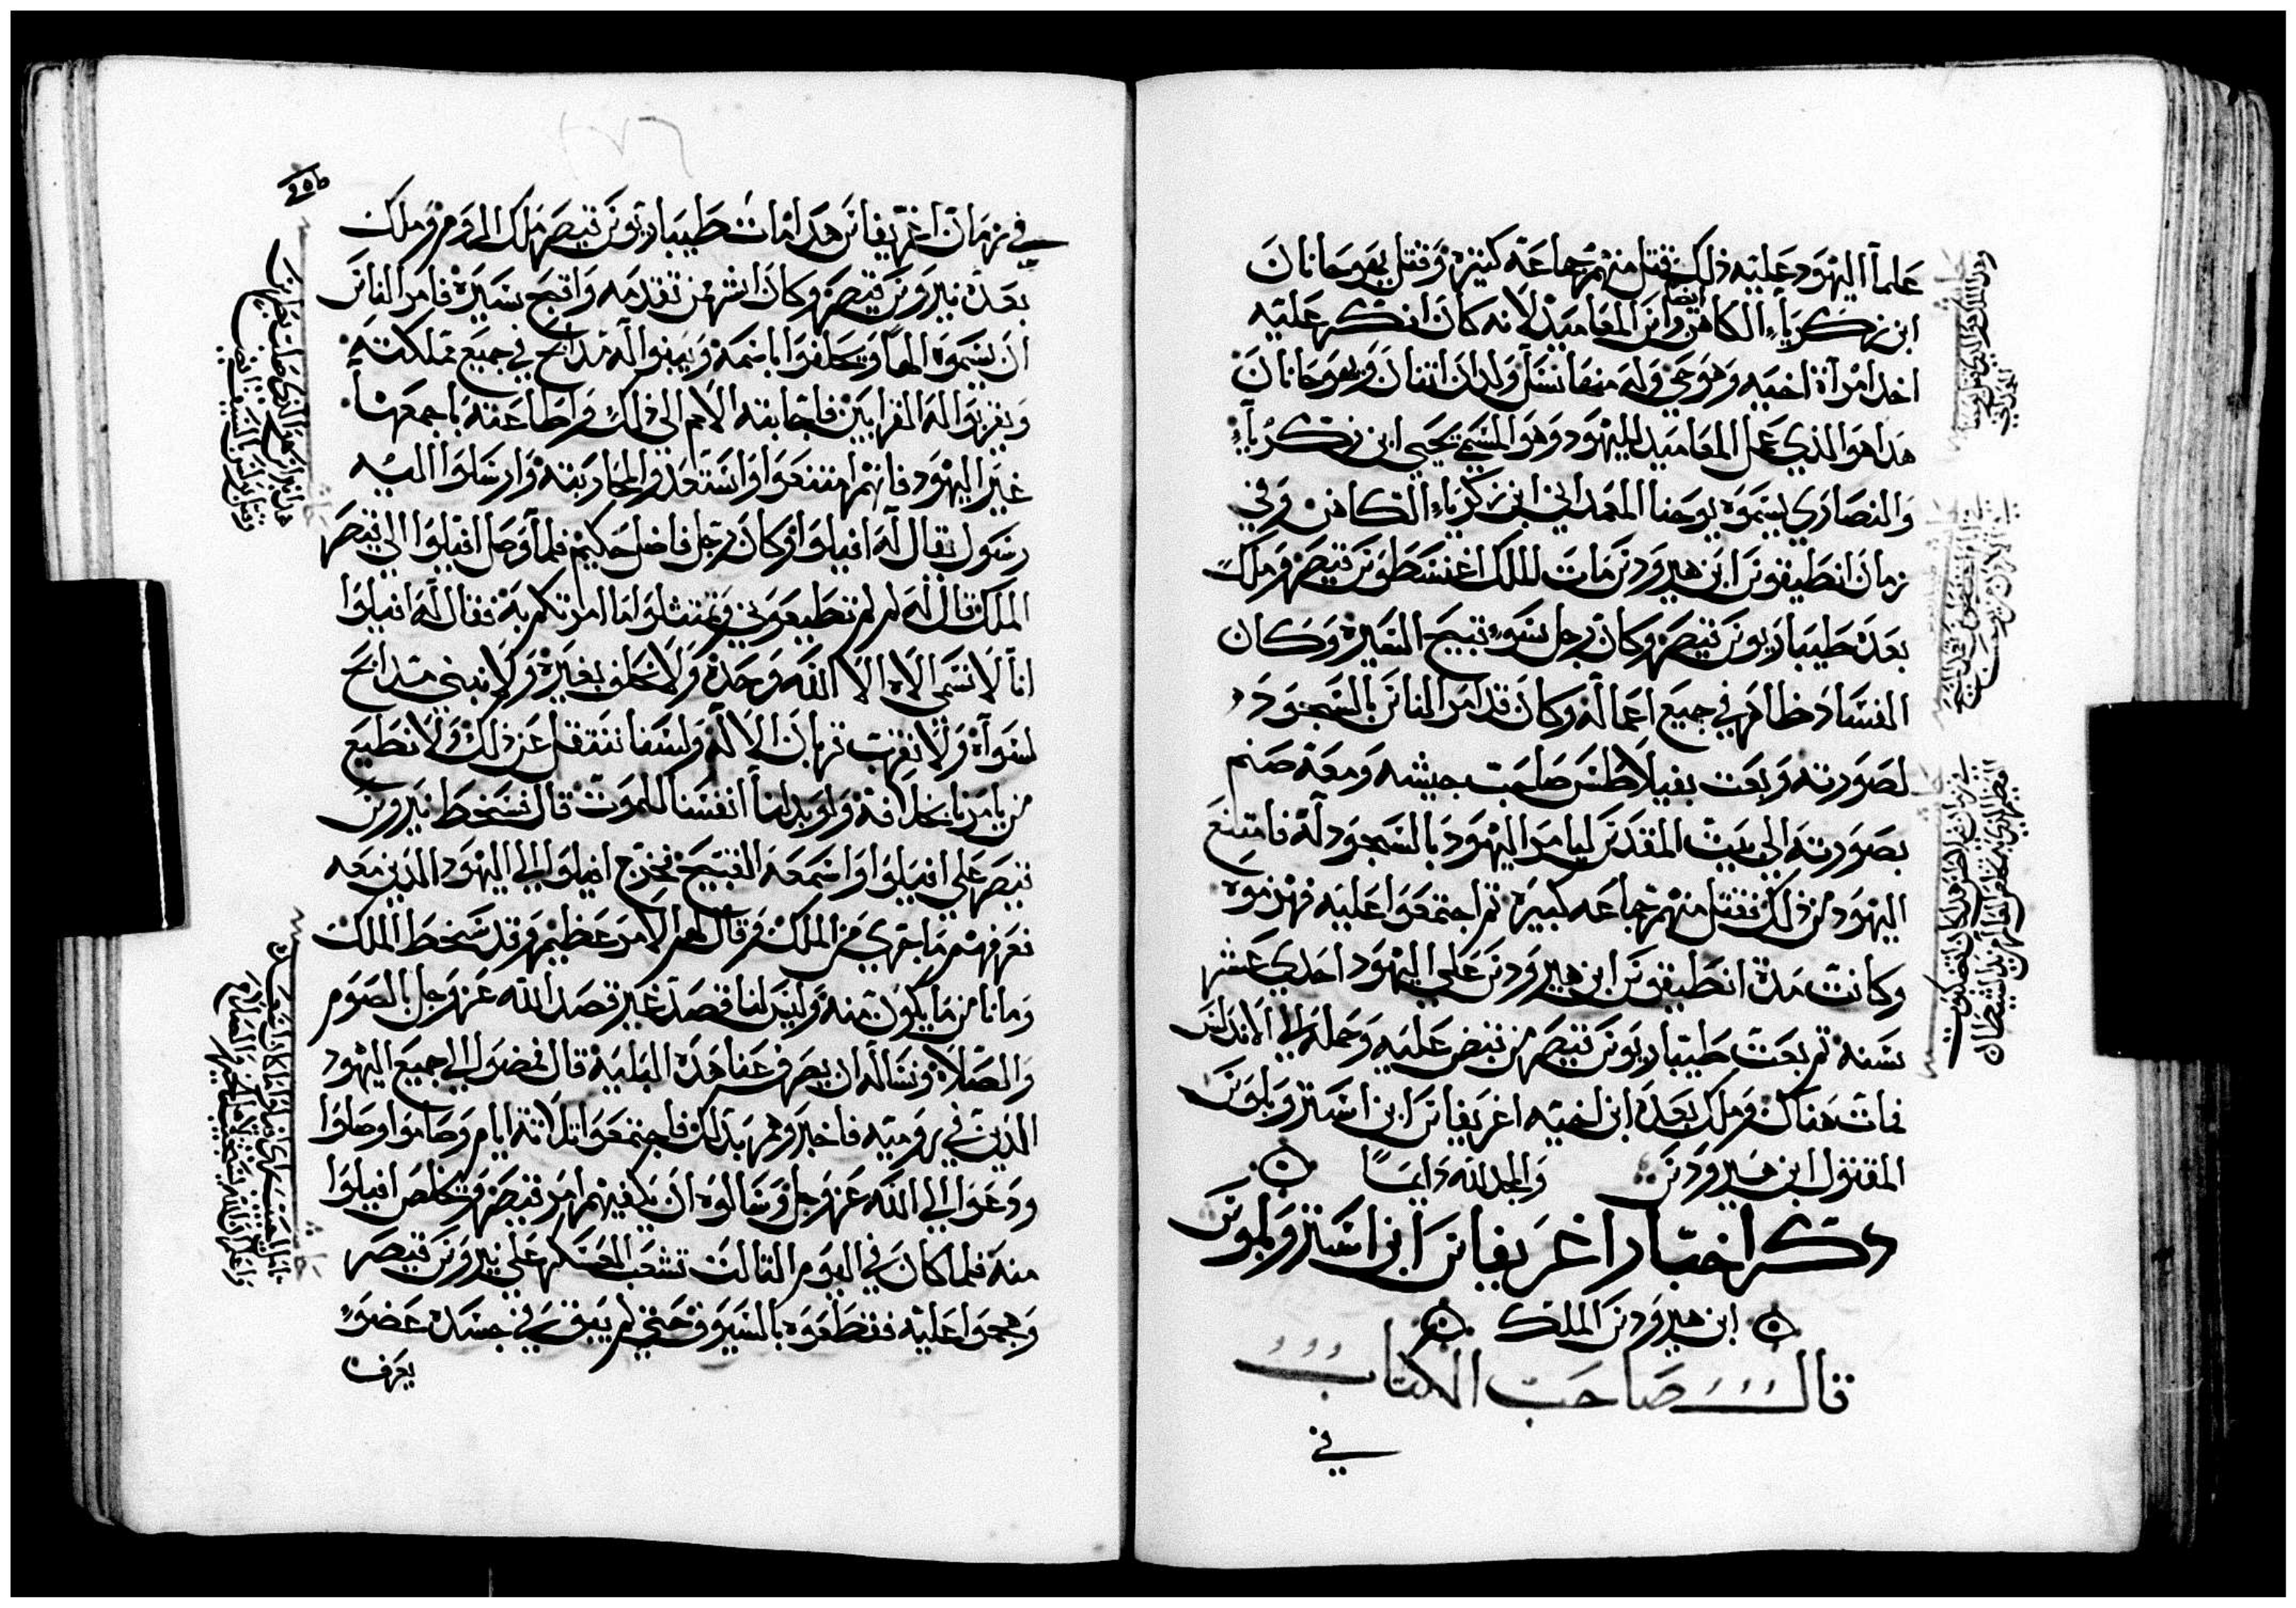 علماً اليهود عليه ذلك فقتل منهم جماعة كثيره وقتل يهوحانان
ابن زكرياء الكاهن ايضا وابن المعاميد لانه كان انكر عليه
اخد امرأة اخيه وهو حي وله منها نسل ولدان اتنان ويهوحانان
هدا هو الذي عمل المعاميد لليهود وهو المسمي يحيى ابن زكرياء
والنصاري يسموه يوحنا المعمداني ابن زكرياء الكاهن وفي
زمان انطيفوس ابن هيرودس مات الملك اغسطوس قيصر وملك
بعده طيباريوس قيصر وكان رجل سوء قبيح السيره وكان
الفساد ظاهر في جميع اعماله وكان قد امر الناس بالسجود
لصورته وبعت بفيلاطس صاحب جيشه ومعه صنم
بصورته الي بيت المقدس ليامر اليهود بالسجود له فامتنع
اليهود من ذلك فقتل منهم جماعه كبيرة تم اجتمعوا عليه فهزموه
وكانت مدة انطيفوس ابن هيرودس علي اليهود احدي عشر
سنه تم بعت طيباريوس قيصر من قبض عليه وحمله الي الاندلس
فمات هناك وملك بعده ابن اخيه اغريفاس ابن استروبلوس
المقتول ابن هيرودس والمجد لله دايمًا
دكر اخبار اغريفاس ابن استروبلوس
ابن هيرودس الملك
قال صاحب الكتاب
في
في زمان اغريفاس هدا مات طيباريوس قيصر ملك الروم وملك
بعده نيروس قيصر وكان اشر من تقدمه واقبح سيره فامر الناس
ان يسموه الهاً ويحلفوا باسمه ويبنوا له مدابح في جميع مملكته
ويقربوا له القرابين فاجابته الامم الي ذلك واطاعته باجمعها
غير اليهود فانهم امتنعوا واستعدوا لمحاربته وارسلوا اليه
رسول يقال له افيلوا وكان رجل فاضل حكيم فلما وصل افيلوا الي قيصر
الملك قال له لم لم تطيعوني وتمتثلوا ما امرتكم به فقال له افيلوا
انا لا نسمى الاه الا الله وحده ولا نحلف بغيره ولا نبني مدابح
لسواه ولا نقرب قربان الا له ولسنا ننتقل عن ذلك ولا نطيع
من يامرنا بخلافه ولو بدلنا انفسنا للموت قال فسخط نيروس
قيصر علي افيلوا واسمعه القبيح فخرج افيلوا الي اليهود الدين معه
فعرفهم ما جري من الملك وقال لهم الامر عظيم وقد سخط الملك
وما نامن ما يكون منه وليس لنا قصد غير قصد الله عز وجل بالصوم
والصلاة ونساله ان يصرف عنا هده البليه قال فمضوا الي جميع اليهود
الدين في روميه فاخبروهم بدلك فاجتمعوا تلاتة ايام وصاموا وصلوا
ودعوا الي الله عز وجل وسالوه ان يكفيهم امر قيصر ويخلص افيلوا
منه فلما كان في اليوم التالت تشعب العسكر علي نيروس قيصر
وهجموا عليه فقطعوه بالسيوف حتي لم يبقي في جسده عضو
يعرف